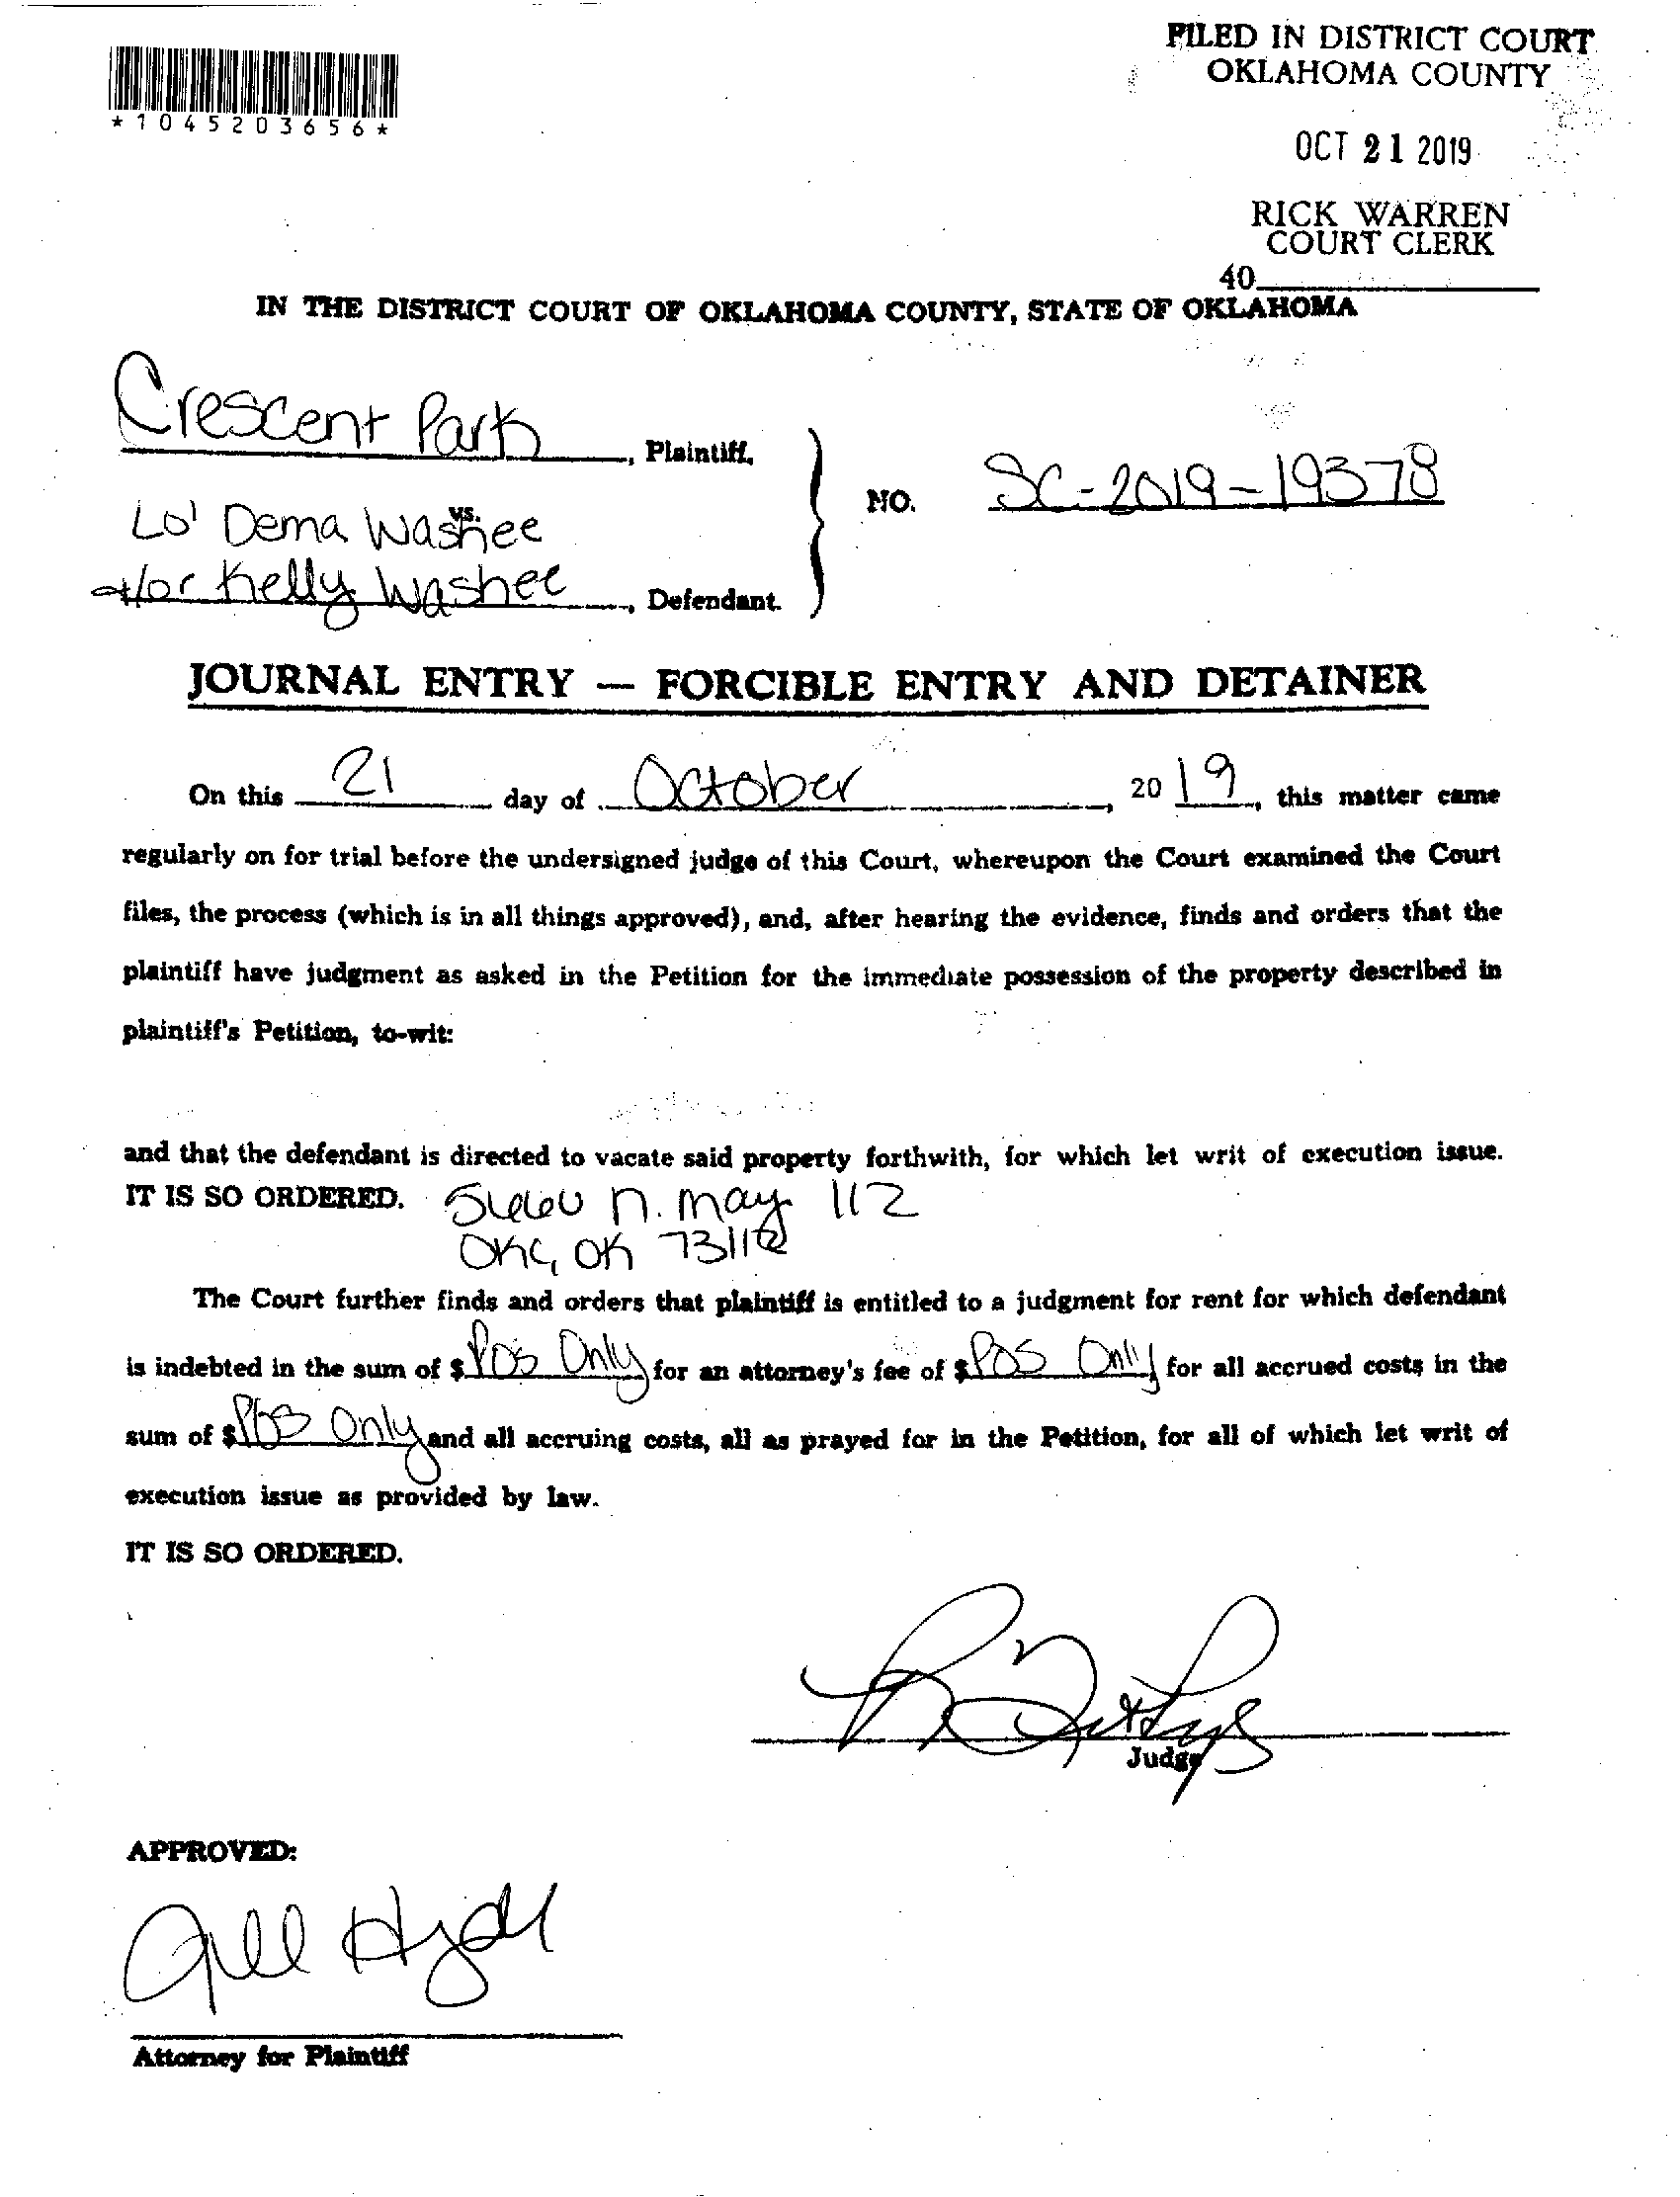 FILED IN DISTRICT COURT
OKLAHOMA COUNTY
*1045203656*
OCT 21 2019
RICK WARREN
COURT CLERK
40
IN THE DISTRICT COURT OF OKLAHOMA COUNTY, STATE OF OKLAHOMA
Crescent Park, Plaintiff,
vs.
NO. SC-2019-19378
Lo' Dema Washee
&/or Kelly Washee, Defendant.
JOURNAL ENTRY — FORCIBLE ENTRY AND DETAINER
On this 21 day of October, 2019, this matter came
regularly on for trial before the undersigned judge of this Court, whereupon the Court examined the Court
files, the process (which is in all things approved), and, after hearing the evidence, finds and orders that the
plaintiff have judgment as asked in the Petition for the immediate possession of the property described in
plaintiff's Petition, to-wit:
and that the defendant is directed to vacate said property forthwith, for which let writ of execution issue.
IT IS SO ORDERED. N. May 112
OKC, OK 73112
The Court further finds and orders that plaintiff is entitled to a judgment for rent for which defendant
is indebted in the sum of $ Pos Only for an attorney's fee of $ Pos Only for all accrued costs in the
sum of $ Pos Only and all accruing costs, all as prayed for in the Petition, for all of which let writ of
execution issue as provided by law.
IT IS SO ORDERED.
Judge
APPROVED:
Attorney for Plaintiff